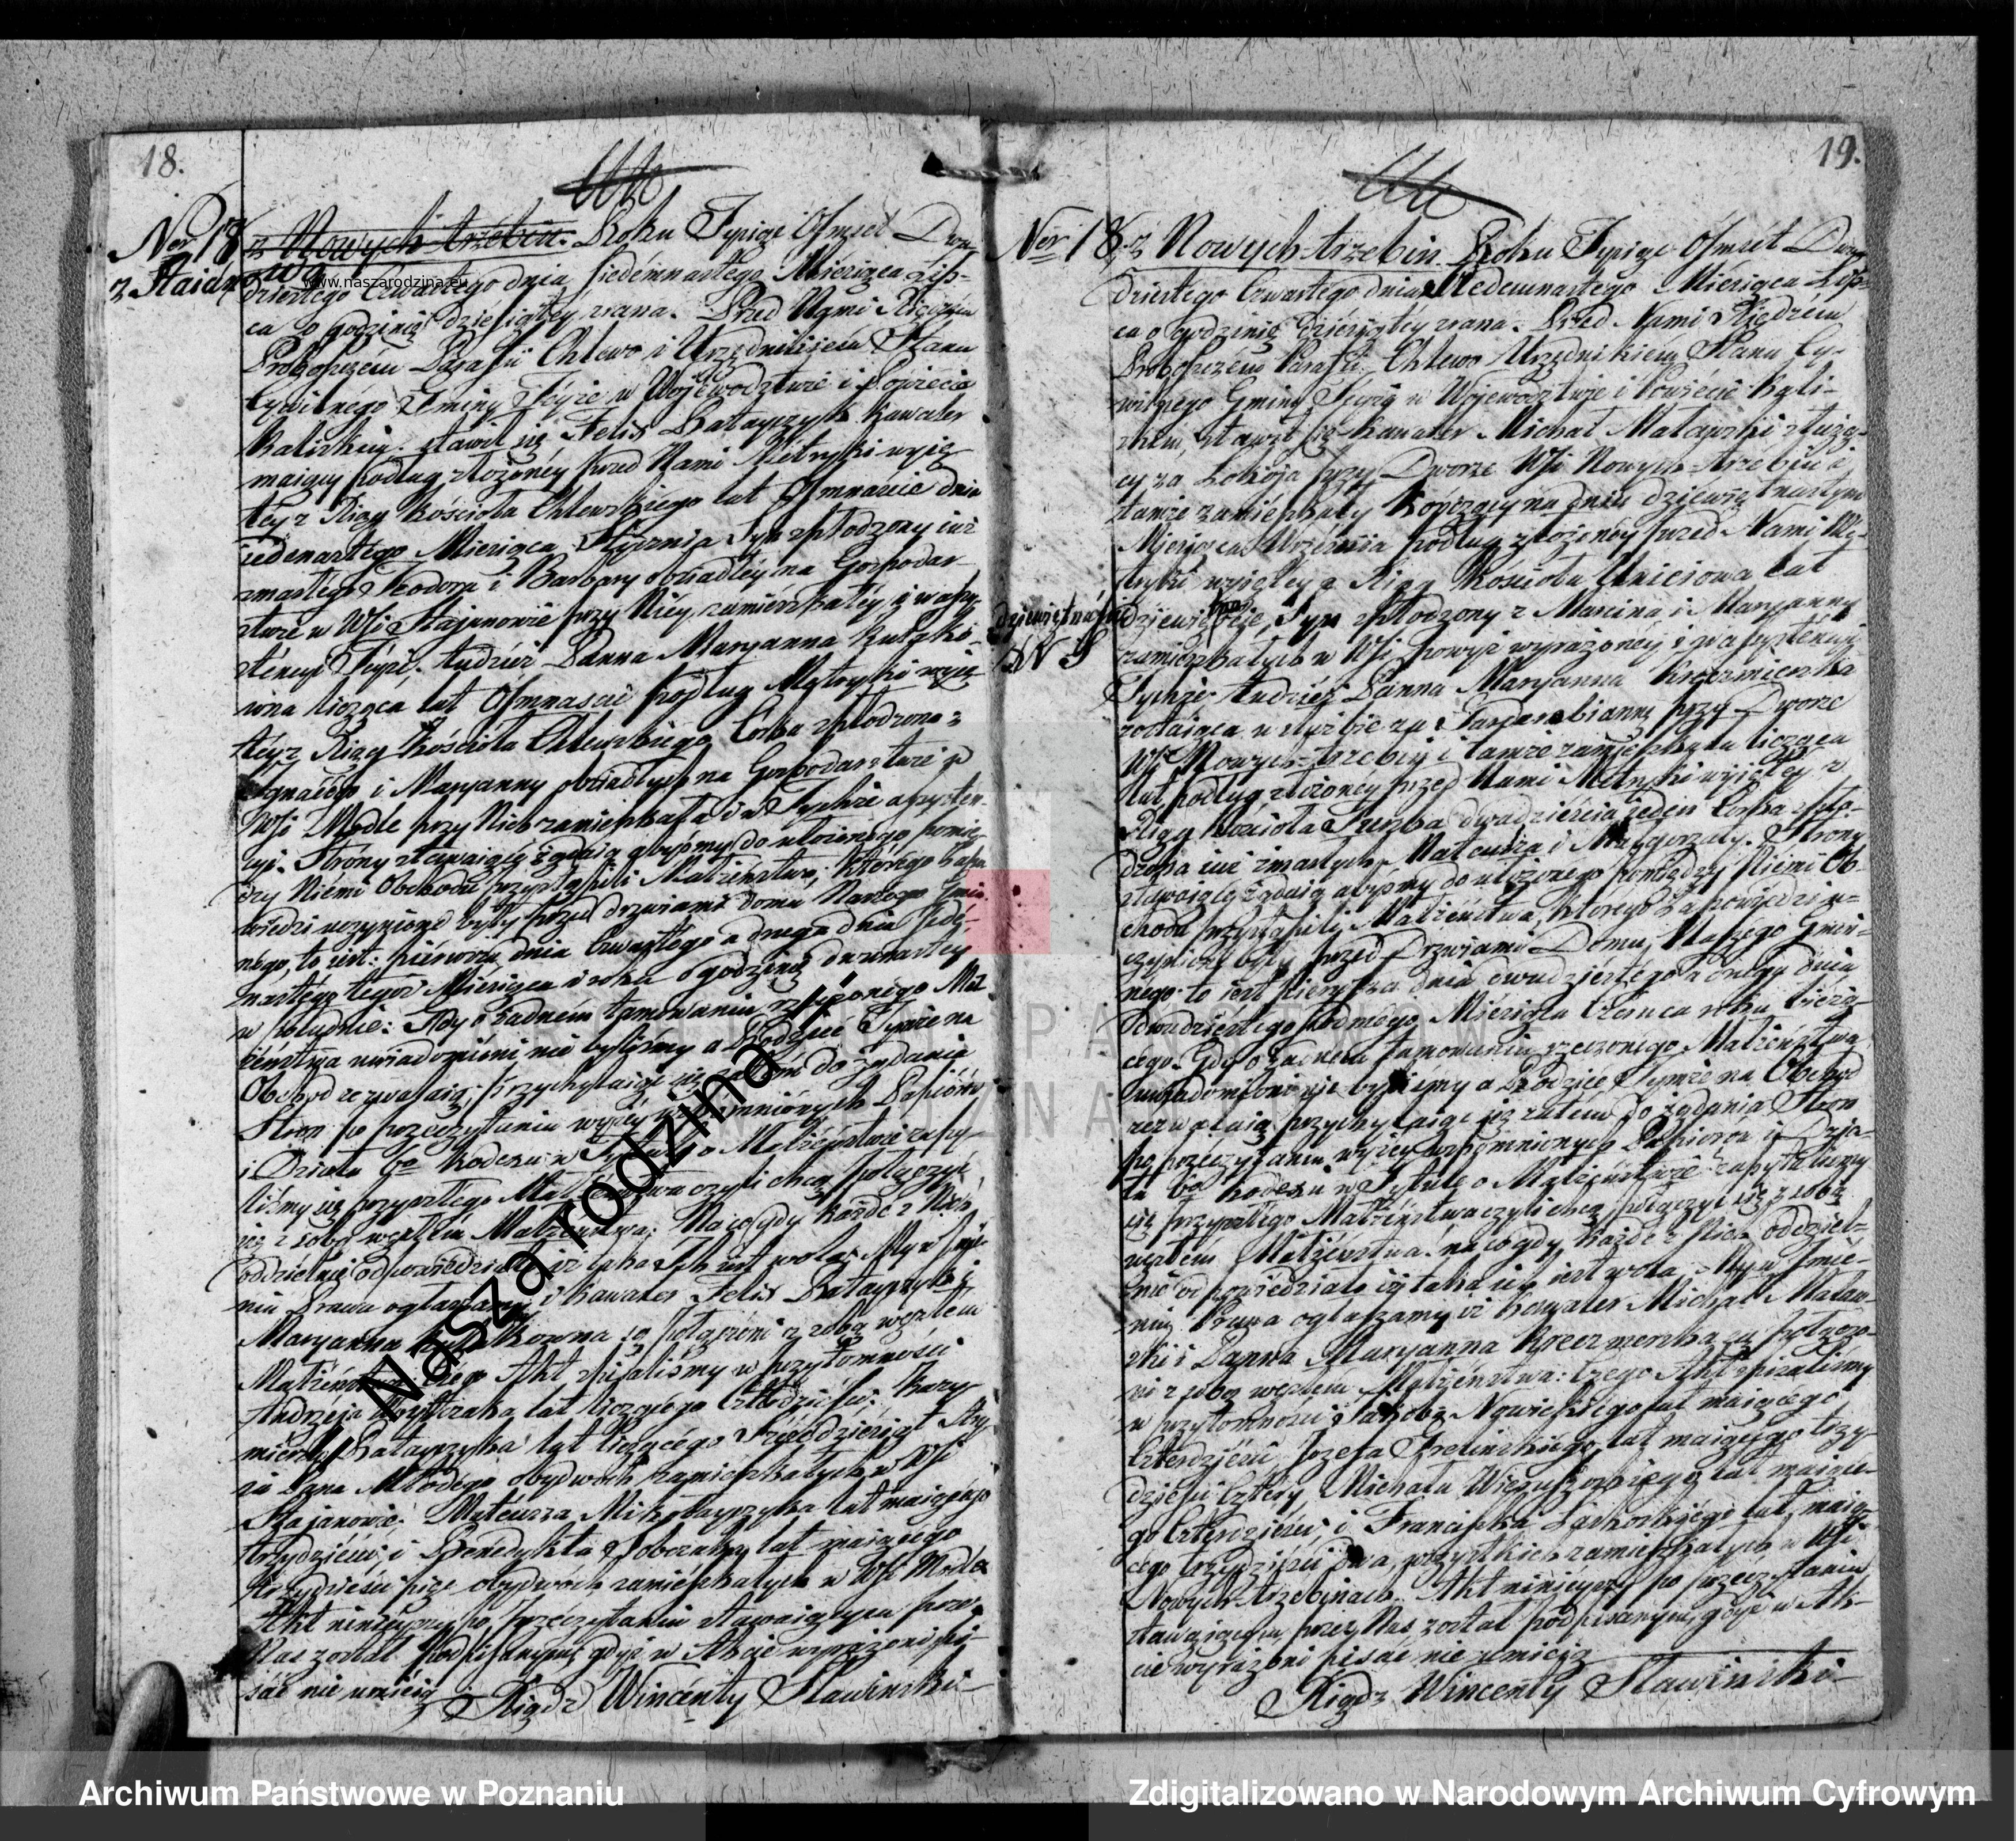 18.
Ner 17
z Staianowa
z Nowych trzebin. Roku Tysiąc Ośmset Dwu-
dziestego Czwartego dnia siedemnastego Miesiąca Lip-
ca o godzinie dziesiątey zrana. Przed Nami Xiędzem
Proboszczem Parafii Chlewo i Urzędnikiem Stanu
Cywilnego Gminy w Woiewództwie i Powiecie
Kaliskim, stawił się Felix Kawaler
maiący podług złożoney przed Nami Metryki wyię
tey z Xiąg Kościoła Chlewskiego lat Ośmnaście dnia
jedenastego Miesiąca Stycznia Syn spłodzony iuż
zmarłego Teodora i Barbary osiadłey na Gospodar-
stwie w Wsi Stajanowie przy Niey zamieszkałey, i w assy-
stencyi Teyże. tudzież Panna Maryanna
wna licząca lat Ośmnaście podług Metryki wyię
tey z Xiąg Kościoła Chlewskiego Corka spłodzona z
Ignacego i Maryanny osiadłych na Gospodarstwie w
Wsi Modle przy Nich zamieszkała i w Tychże assysten-
cyi. Strony stawaiące żądaią abyśmy do ułożonego pomię
dzy Niemi Obchodu przystąpili Małżeństwa, którego Zapo
wiedzi uczynione były przed drzwiami domu Naszego Gmin-
nego, to iest: pierwsza dnia Czwartego a druga dnia Jede-
nastego tegoż Miesiąca i roku o godzinie dwunastey
w południe: Gdy o żadném tamowaniu rzeczonego Mał
żeństwa uwiadomieni nie byliśmy a Rodzice Tymże na
Obchod zezwalaią; przychylaiąc się zatem do żądania
Stron po przeczytaniu wyżey wspomnionych Papierów
i Działu 6go Kodexu w Tytule o Małżeństwie zapy-
taliśmy się przyszłego Małżeństwa czyli chcą połączyć
się z sobą węzłem Małżeństwa; Na co gdy każde z Nich
oddzielnie odpowiedziało iż taka Ich iest wola: My w Imie
niu Prawa ogłaszamy iż Kawaler Felix i
Maryanna są połączeni z sobą węzłem
Małżeństwa. Czego Akt spisaliśmy w przytomności
Andrzeja lat liczącego Czterdzieści; Kazi-
mierza lat liczącego Pięćdziesiąt
obydwóch zamieszkałych w Wsi
Stajanowie. Mateusza Mikołayczyka lat maiącego
trzydzieści; i Benedykta lat maiącego
trzydzieści pięć obydwóch zamieszkałych w Wsi Modla
Akt ninieyszy po przeczytaniu stawaiącym przez
Nas został podpisanym, gdyż w Akcie wyrażeni pi-
sać nie umieią
Xiądz Wincenty Stawinski
19.
Ner 18. z Nowych trzebin. Roku Tysiąc Ośmset Dwu
dziestego Czwartego dnia Siedemnastego Miesiąca Lip-
ca o godzinie dziesiątey zrana. Przed Nami Xiędzem
Proboszczem Parafii Chlewo Urzędnikiem Stanu Cy-
wilnego Gminy w Woiewództwie i Powiecie Kali-
skim, stawił się Kawaler Michał Matayski służą-
cy za Lokaja przy Dworze Wsi Nowych trzebin i
tamże zamieszkały Kończący na dniu dziewiętnastym
Miesiąca Września podług złożoney przed Nami Me-
tryki wyiętey z Xiąg Kościoła Uniejowa lat
dziewiętnaście
Syn spłodzony z Marcina i Maryanny
zamieszkałych w Wsi powyż wyrażoney i w assystencyi
Tychże. tudzież Panna Maryanna Kreczmierska
zostaiąca w służbie za przy Dworze
Wsi Nowych trzebin i tamże zamieszkała licząca
lat podług złożoney przed Nami Metryki wyiętey z
Xiąg Kościoła dwadzieścia jeden Corka spło-
dzona iuż zmarłych Mateusza i Małgorzaty. Strony
stawaiące żądaią abyśmy do ułożonego pomiędzy Niemi Ob-
chodu przystąpili Małżeństwa, którego Zapowiedzi u-
czynione były przed Drzwiami Domu Naszego Gmin-
nego to iest pierwsza dnia dwudziestego a druga dnia
dwudziestego siodmego Miesiąca Czerwca roku bieżą-
cego. Gdy o żadnem tamowaniu rzeczonego Małżeństwa
uwiadomieni nie byliśmy a Rodzice Tymże na Obchod
zezwalaią przychylaiąc się zatem do żądania Stron
po przeczytaniu wyżey wspomnionych Papierow i Dzia-
łu 6go Kodexu w Tytule o Małżeństwie zapytaliśmy
się przyszłego Małżeństwa czyli chcą połączyć się z sobą
węzłem Małżeństwa. na co gdy każde z Nich oddziel-
nie odpowiedziało iż taka ich iest wola. My w Imie-
niu Prawa ogłaszamy iż Kawaler Michał Matay-
ski i Panna Maryanna Kreczmerska są połączo-
ni z sobą węzłem Małżeństwa: czego Akt spisaliśmy
w przytomności Jakóba Nowickiego lat maiącego
Czterdzieści, Jozefa lat maiącego trzy-
dzieści Cztery, Michała lat maiące-
go Czterdzieści, i Franciszka lat maią-
cego trzydzieści dwa, wszystkich zamieszkałych w Wsi
Nowych trzebinach. Akt ninieyszy po przeczytaniu
stawaiącym przez Nas został podpisanym, gdyż w Ak-
cie wyrażeni pisać nie umieią
Xiądz Wincenty Stawinski
www.naszarodzina.eu
Nasza rodzina
Archiwum Państwowe w Poznaniu
Zdigitalizowano w Narodowym Archiwum Cyfrowym